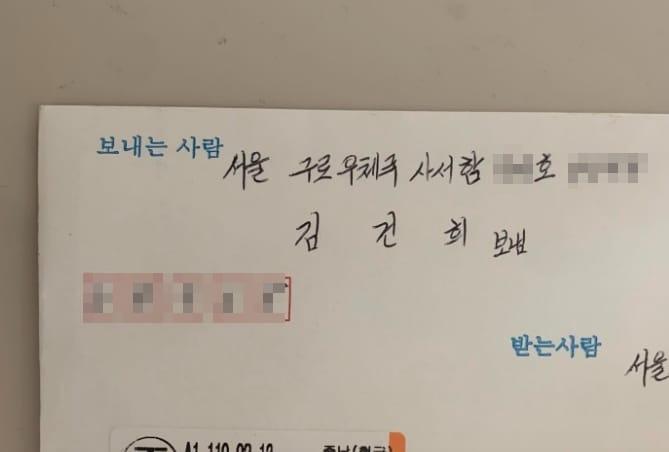 보내는 사람 서울 구로우체국 사서함 호
김 건 희 보냄
받는사람
서울